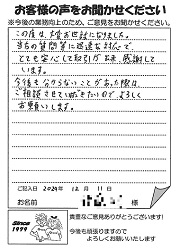 お客様の声をお聞かせください
※今後の業務向上のため、ご意見をお聞かせください。
この度は、大変お世話になりました。
当方の質問等に迅速な対応で、
とても安心して取引ができ、感謝して
います。
今後も分からないことがあった際は、
ご相談させていただきたいのでよろしく
お願いします。
ご記入日 2024年 12月 11日
お名前 様
Since
1999
貴重なご意見ありがとうございます!
今後も頑張りますので
よろしくお願いいたします